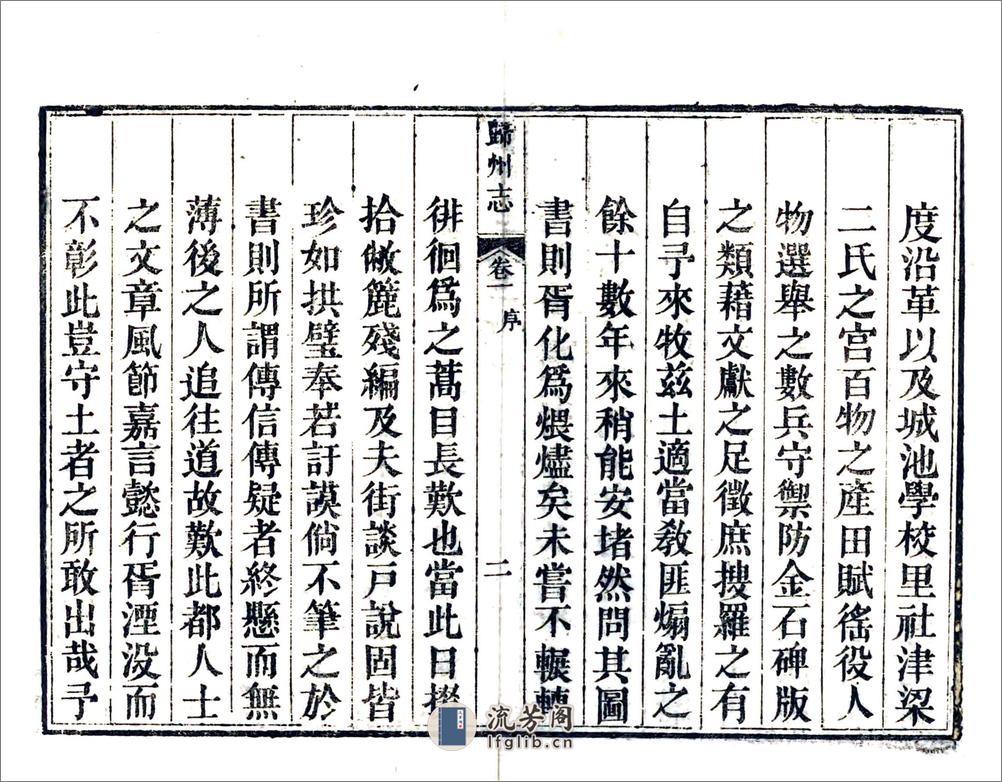 度沿革以及城池學校里社津梁
二氏之宮百物之產田賦徭役人
物選舉之數兵守禦防金石碑版
之類藉文獻之足徵庶搜羅之有
自予來牧茲土適當敎匪煽亂之
餘十數年來稍能安堵然問其圖
書則胥化爲煨燼矣未嘗不輾轉
歸州志 卷一 序 二
徘徊爲之蒿目長歎也當此日掇
拾敝簏殘編及夫街談戸說固皆
珍如拱璧奉若訏謨倘不筆之於
書則所謂傳信傳疑者終懸而無
薄後之人追往道故歎此都人士
之文章風節嘉言懿行胥湮没而
不彰此豈守土者之所敢出哉予
流芳阁
lfglib.cn